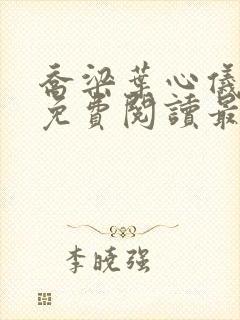 喬梁葉心儀
免費閱讀最
李曉强